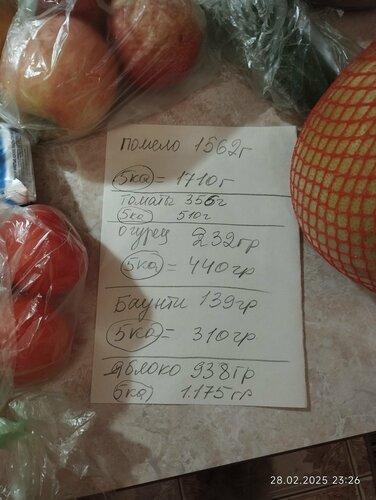 помело 1562г
5ка = 1710г
томаты 356г
5ка 510г
огурец 232гр
5ка = 440гр
Баунти 139гр
5ка = 310гр
Яблоко 938гр
5ка 1.175гр
28.02.2025 23:26